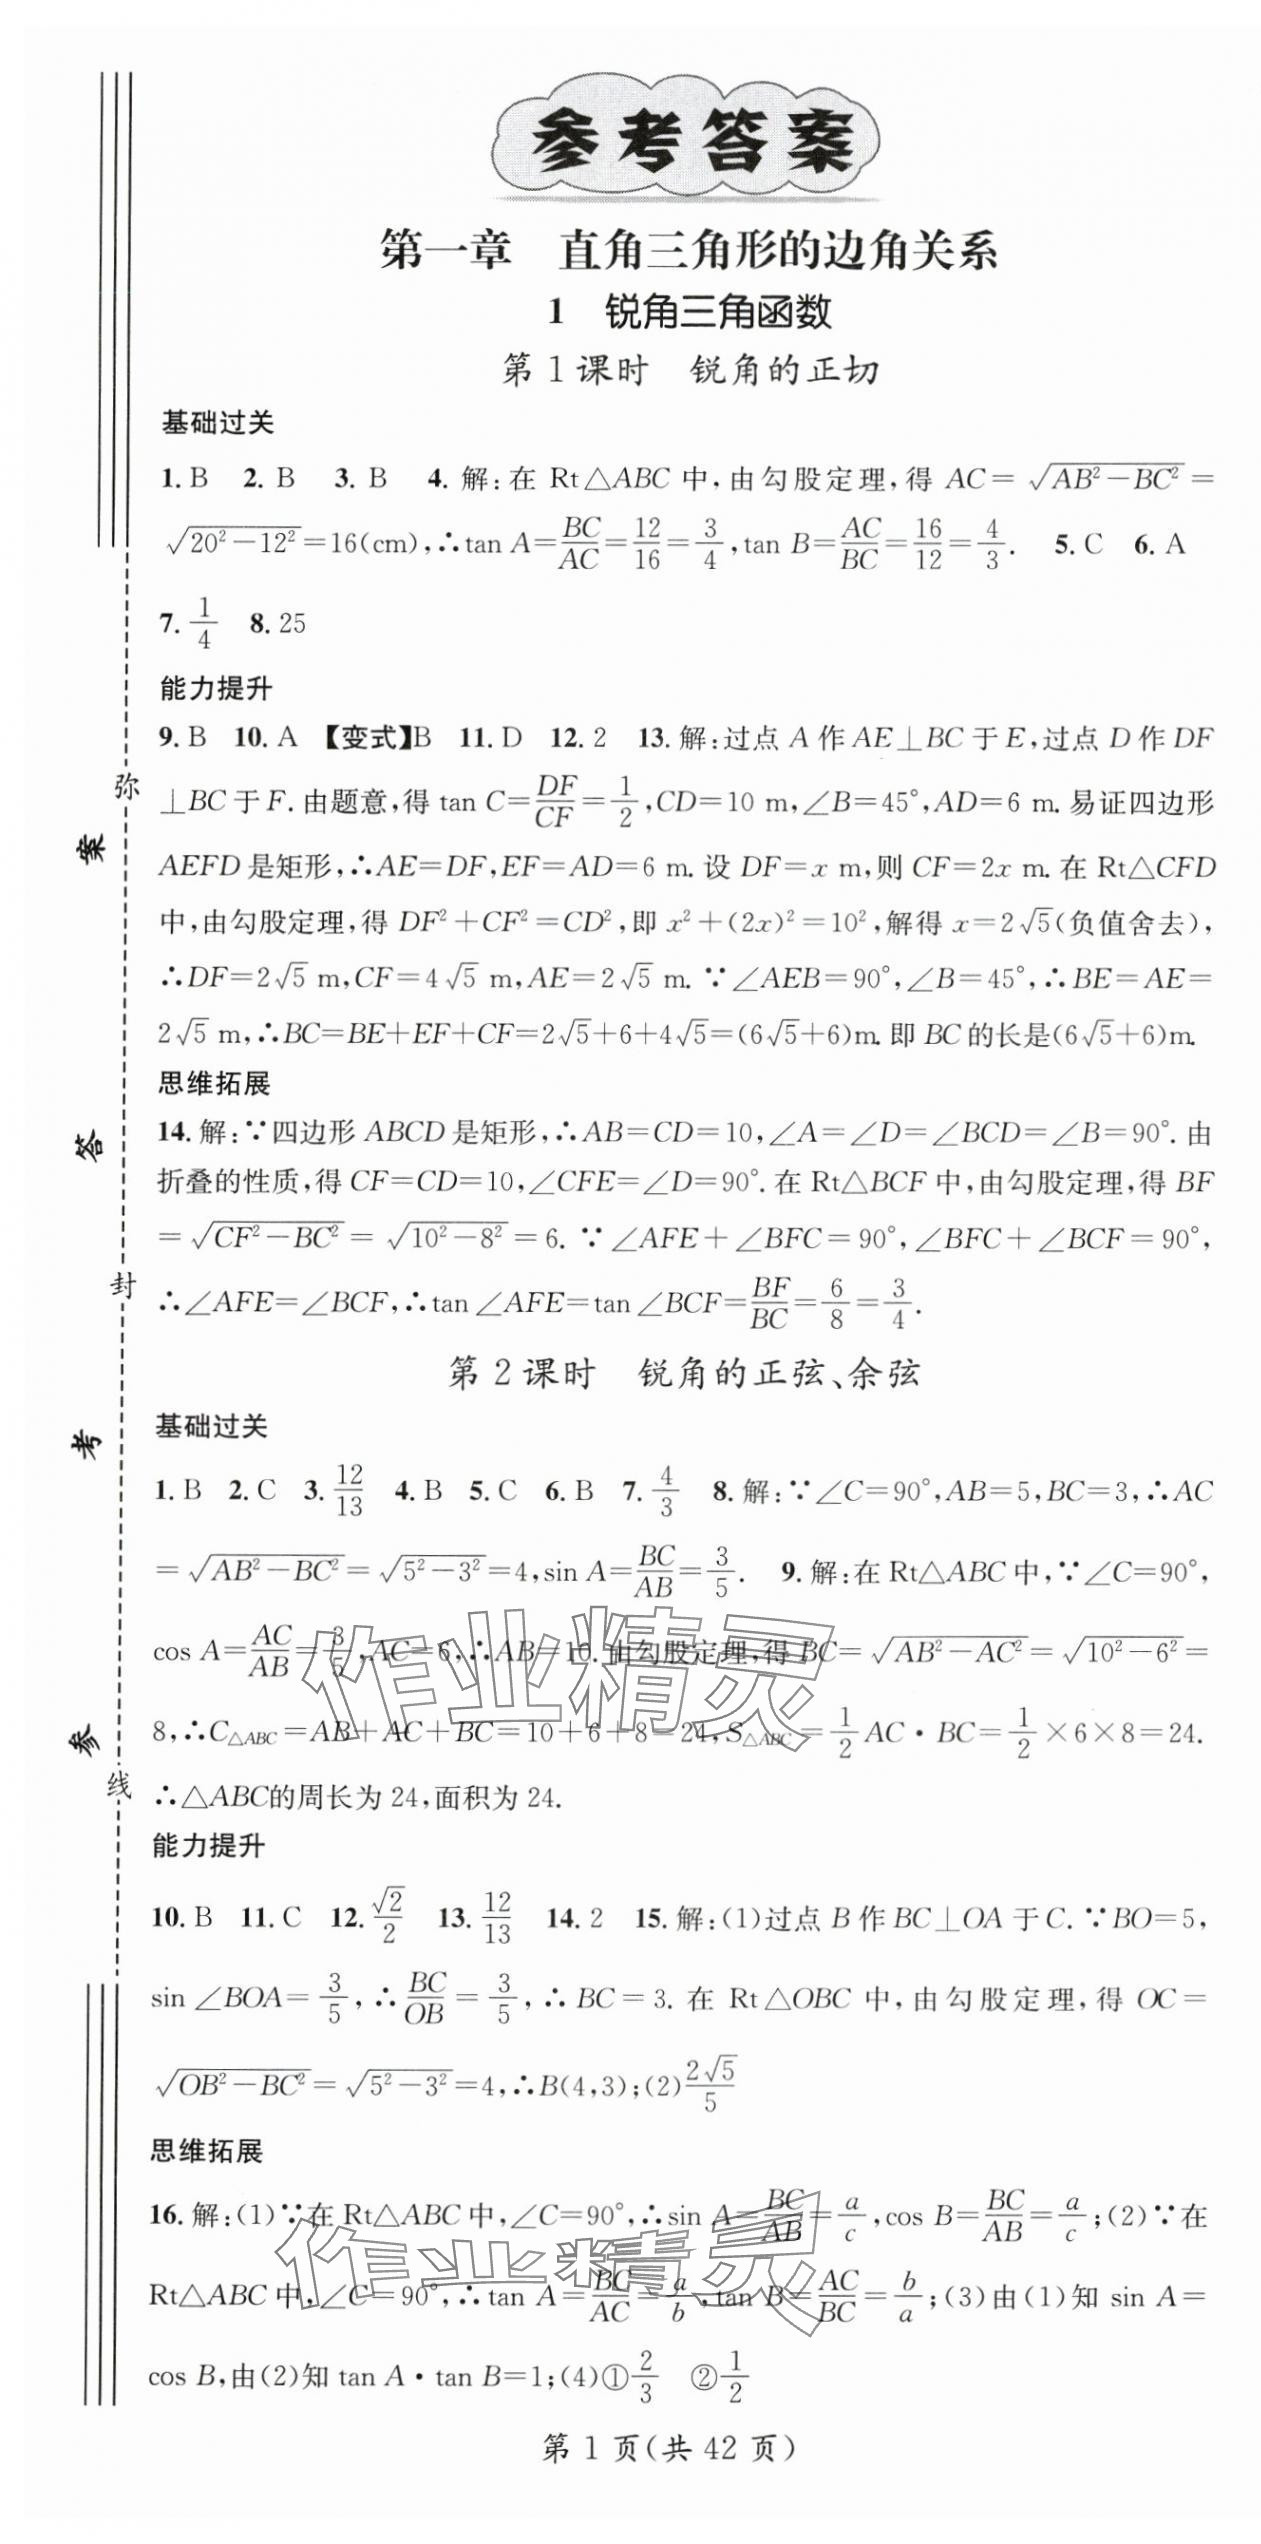 参考答案
第一章 直角三角形的边角关系
1 锐角三角函数
第1课时 锐角的正切
基础过关
1. B 2. B 3. B 4. 解:在 Rt△ABC 中,由勾股定理,得 AC=√(AB²-BC²)=
√(20²-12²)=16(cm),∴tan A=BC/AC=12/16=3/4,tan B=AC/BC=16/12=4/3. 5. C 6. A
7. 1/4 8. 25
能力提升
9. B 10. A 【变式】B 11. D 12. 2 13. 解:过点 A 作 AE⊥BC 于 E,过点 D 作 DF
⊥BC 于 F. 由题意,得 tan C=DF/CF=1/2,CD=10 m,∠B=45°,AD=6 m. 易证四边形
AEFD 是矩形,∴AE=DF,EF=AD=6 m. 设 DF=x m,则 CF=2x m. 在 Rt△CFD
中,由勾股定理,得 DF²+CF²=CD²,即 x²+(2x)²=10²,解得 x=2√5(负值舍去),
∴DF=2√5 m,CF=4√5 m,AE=2√5 m. ∵∠AEB=90°,∠B=45°,∴BE=AE=
2√5 m,∴BC=BE+EF+CF=2√5+6+4√5=(6√5+6)m. 即 BC 的长是(6√5+6)m.
思维拓展
14. 解:∵四边形 ABCD 是矩形,∴AB=CD=10,∠A=∠D=∠BCD=∠B=90°. 由
折叠的性质,得 CF=CD=10,∠CFE=∠D=90°. 在 Rt△BCF 中,由勾股定理,得 BF
=√(CF²-BC²)=√(10²-8²)=6. ∵∠AFE+∠BFC=90°,∠BFC+∠BCF=90°,
∴∠AFE=∠BCF,∴tan∠AFE=tan∠BCF=BF/BC=6/8=3/4.
第2课时 锐角的正弦、余弦
基础过关
1. B 2. C 3. 12/13 4. B 5. C 6. B 7. 4/3 8. 解:∵∠C=90°,AB=5,BC=3,∴AC
=√(AB²-BC²)=√(5²-3²)=4,sin A=BC/AB=3/5. 9. 解:在 Rt△ABC 中,∵∠C=90°,
cos A=AC/AB=3/5,AC=6,∴AB=10. 由勾股定理,得 BC=√(AB²-AC²)=√(10²-6²)=
8,∴C△ABC=AB+AC+BC=10+6+8=24,S△ABC=1/2 AC·BC=1/2×6×8=24.
∴△ABC的周长为 24,面积为 24.
能力提升
10. B 11. C 12. √2/2 13. 12/13 14. 2 15. 解:(1)过点 B 作 BC⊥OA 于 C. ∵BO=5,
sin∠BOA=3/5,∴BC/OB=3/5,∴BC=3. 在 Rt△OBC 中,由勾股定理,得 OC=
√(OB²-BC²)=√(5²-3²)=4,∴B(4,3);(2)2√5/5
思维拓展
16. 解:(1)∵在 Rt△ABC 中,∠C=90°,∴sin A=BC/AB=a/c,cos B=BC/AB=a/c;(2)∵在
Rt△ABC 中,∠C=90°,∴tan A=BC/AC=a/b,tan B=AC/BC=b/a;(3)由(1)知 sin A=
cos B,由(2)知 tan A·tan B=1;(4)①2/3 ②1/2
第 1 页(共 42 页)
弥
封
线
参 考 答 案
作业精灵
作业精灵